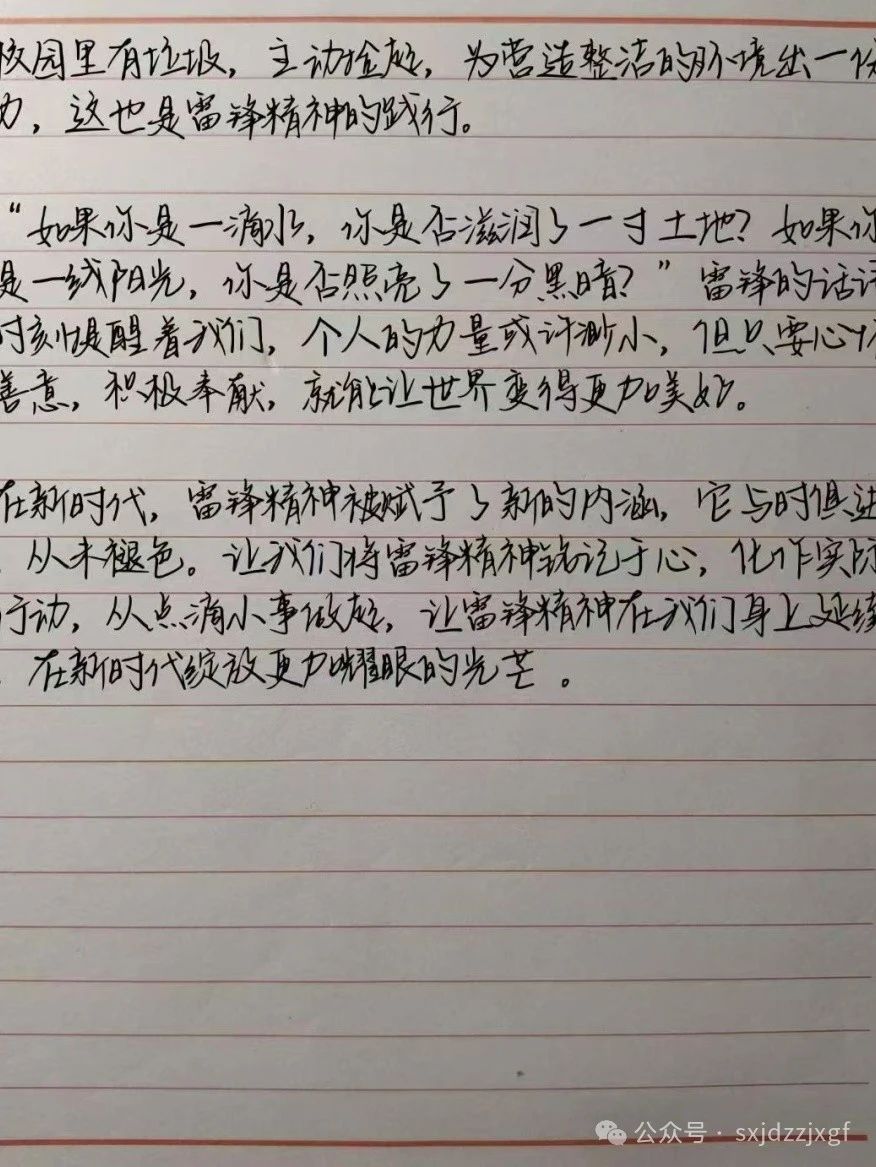 校园里有垃圾，主动捡起，为营造整洁的环境出一份
力，这也是雷锋精神的践行。
“如果你是一滴水，你是否滋润了一寸土地？如果你
是一线阳光，你是否照亮了一分黑暗？”雷锋的话语
时刻提醒着我们，个人的力量或许渺小，但只要心怀
善意，积极奉献，就能让世界变得更加美好。
在新时代，雷锋精神被赋予了新的内涵，它与时俱进
，从未褪色。让我们将雷锋精神铭记于心，化作实际
行动，从点滴小事做起，让雷锋精神在我们身上延续
，在新时代绽放更加耀眼的光芒。
公众号·sxjdzzjxgf